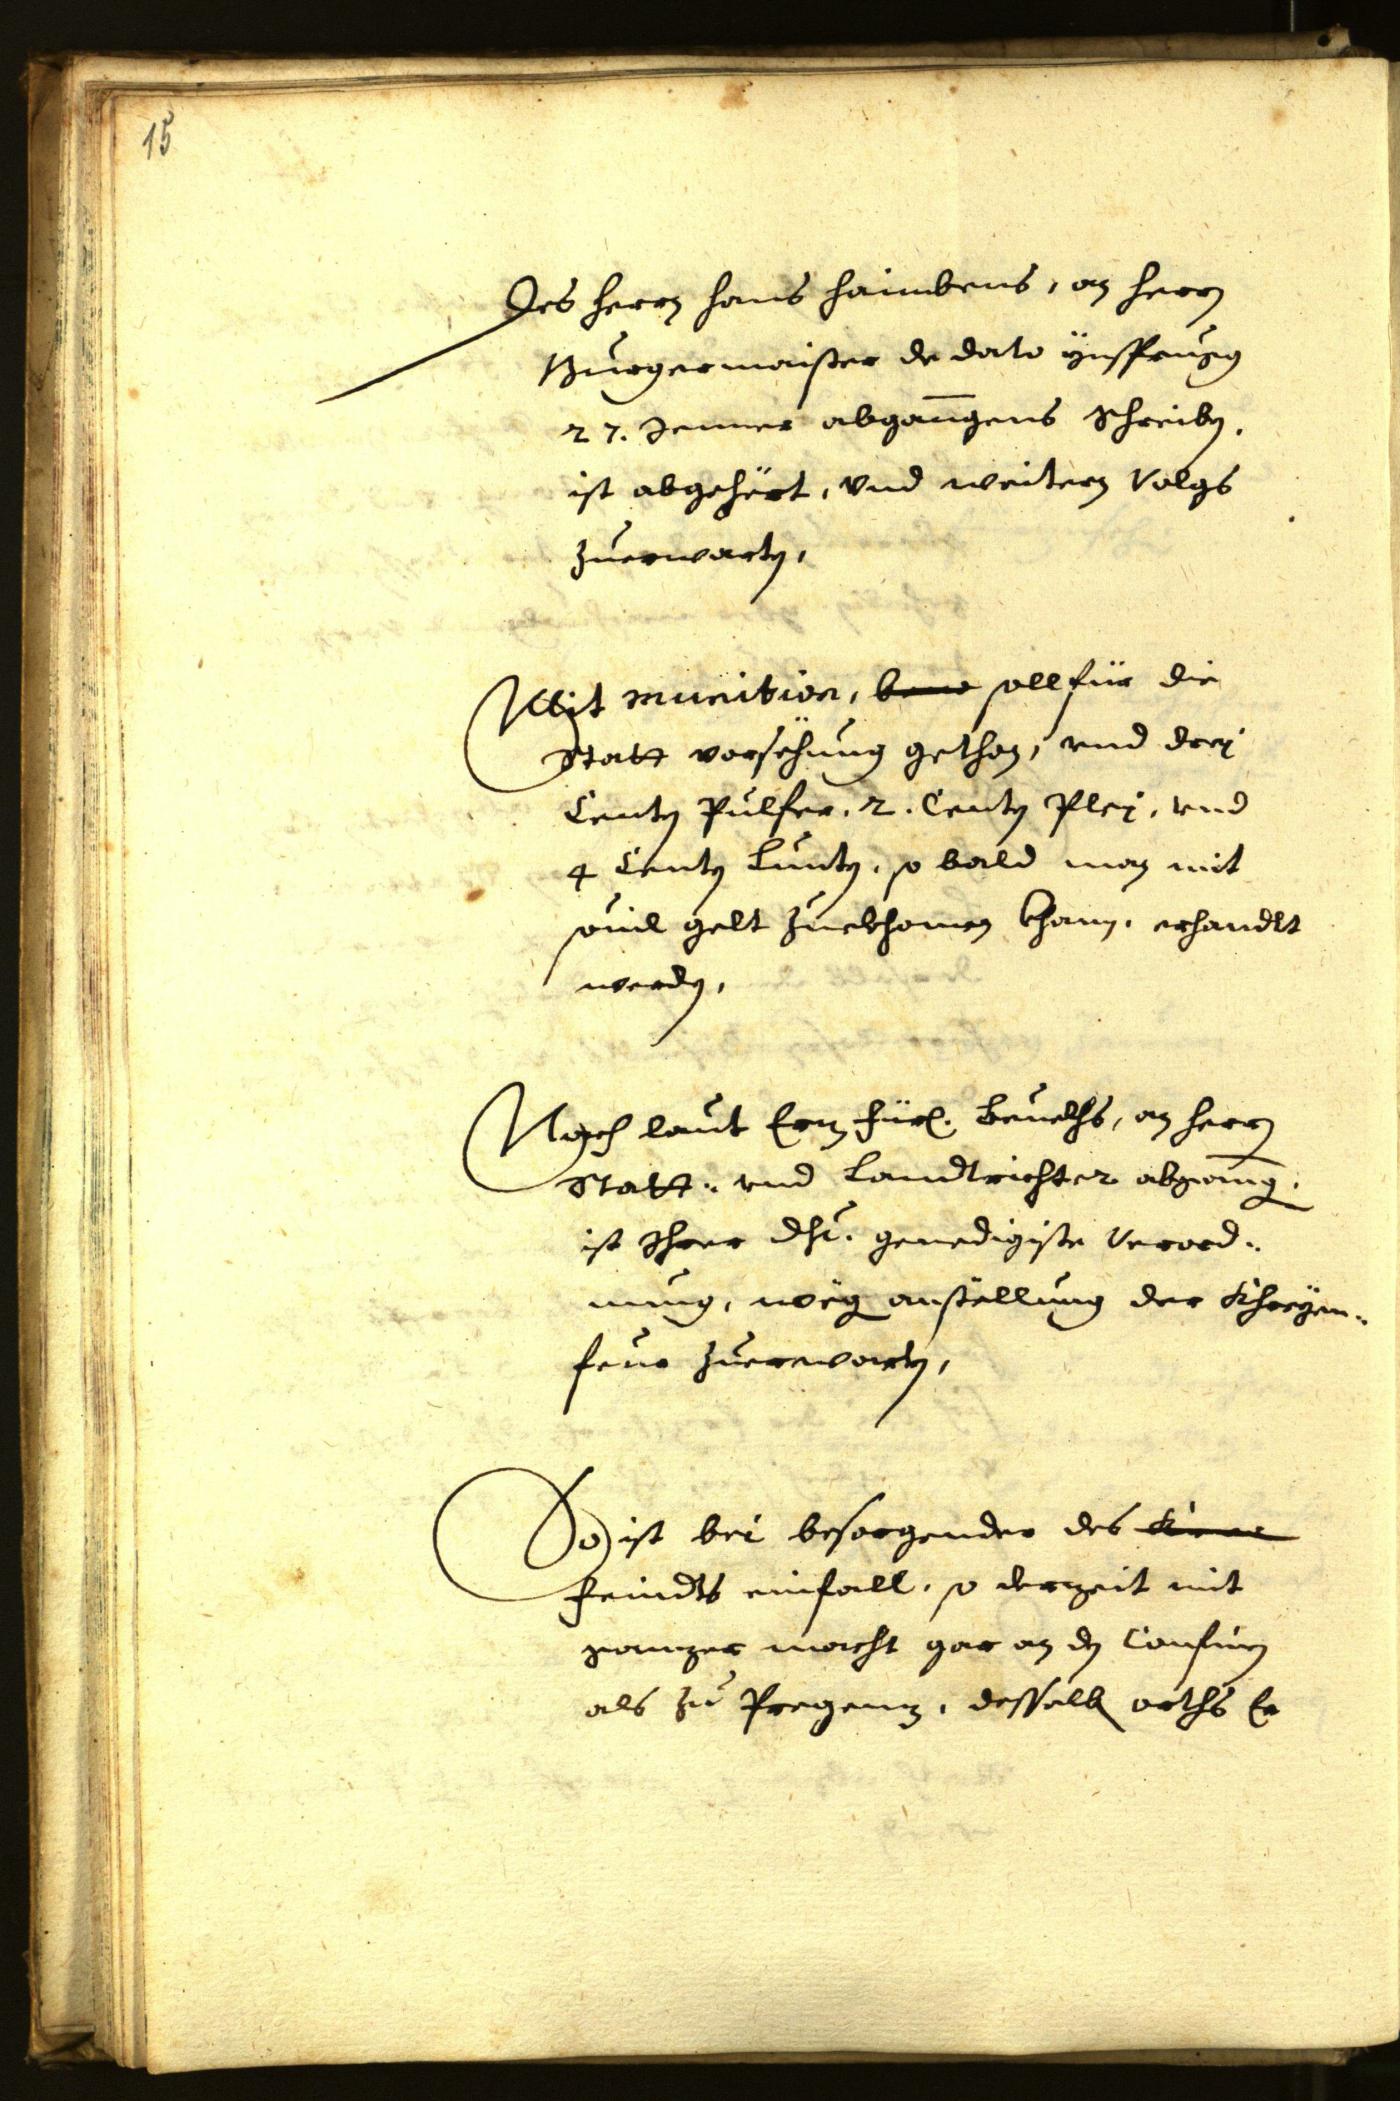 15
Des herrn Hans Haimbens, an herrn
Burgermaister de dato Ÿnsprugg
27. Jenner abganngens Schreiben,
ist abgehört, vnd weitern Volgs
zuerwarten,
Mit munition, soll für die
Statt vorsehung gethan, vnd drej
Centen Pulfer. 2. Centen Pley, vnd
4 Centen Lunten, so bald man mit
souil gelt zuekhomen khann, erhandlt
werden,
Nach laut Ern Fürl. beuelchs, an herrn
Statt- vnd Landtrichter abganng,
ist Ihrer Dht. genedigiste Verord-
nung, weg anstellung der Khreÿen-
feur zuerwarten,
So ist bei besorgender des
feindts einfall, so derzeit mit
ganzer macht gar an den Confinen
als zu Pregenz, desselben orths Er